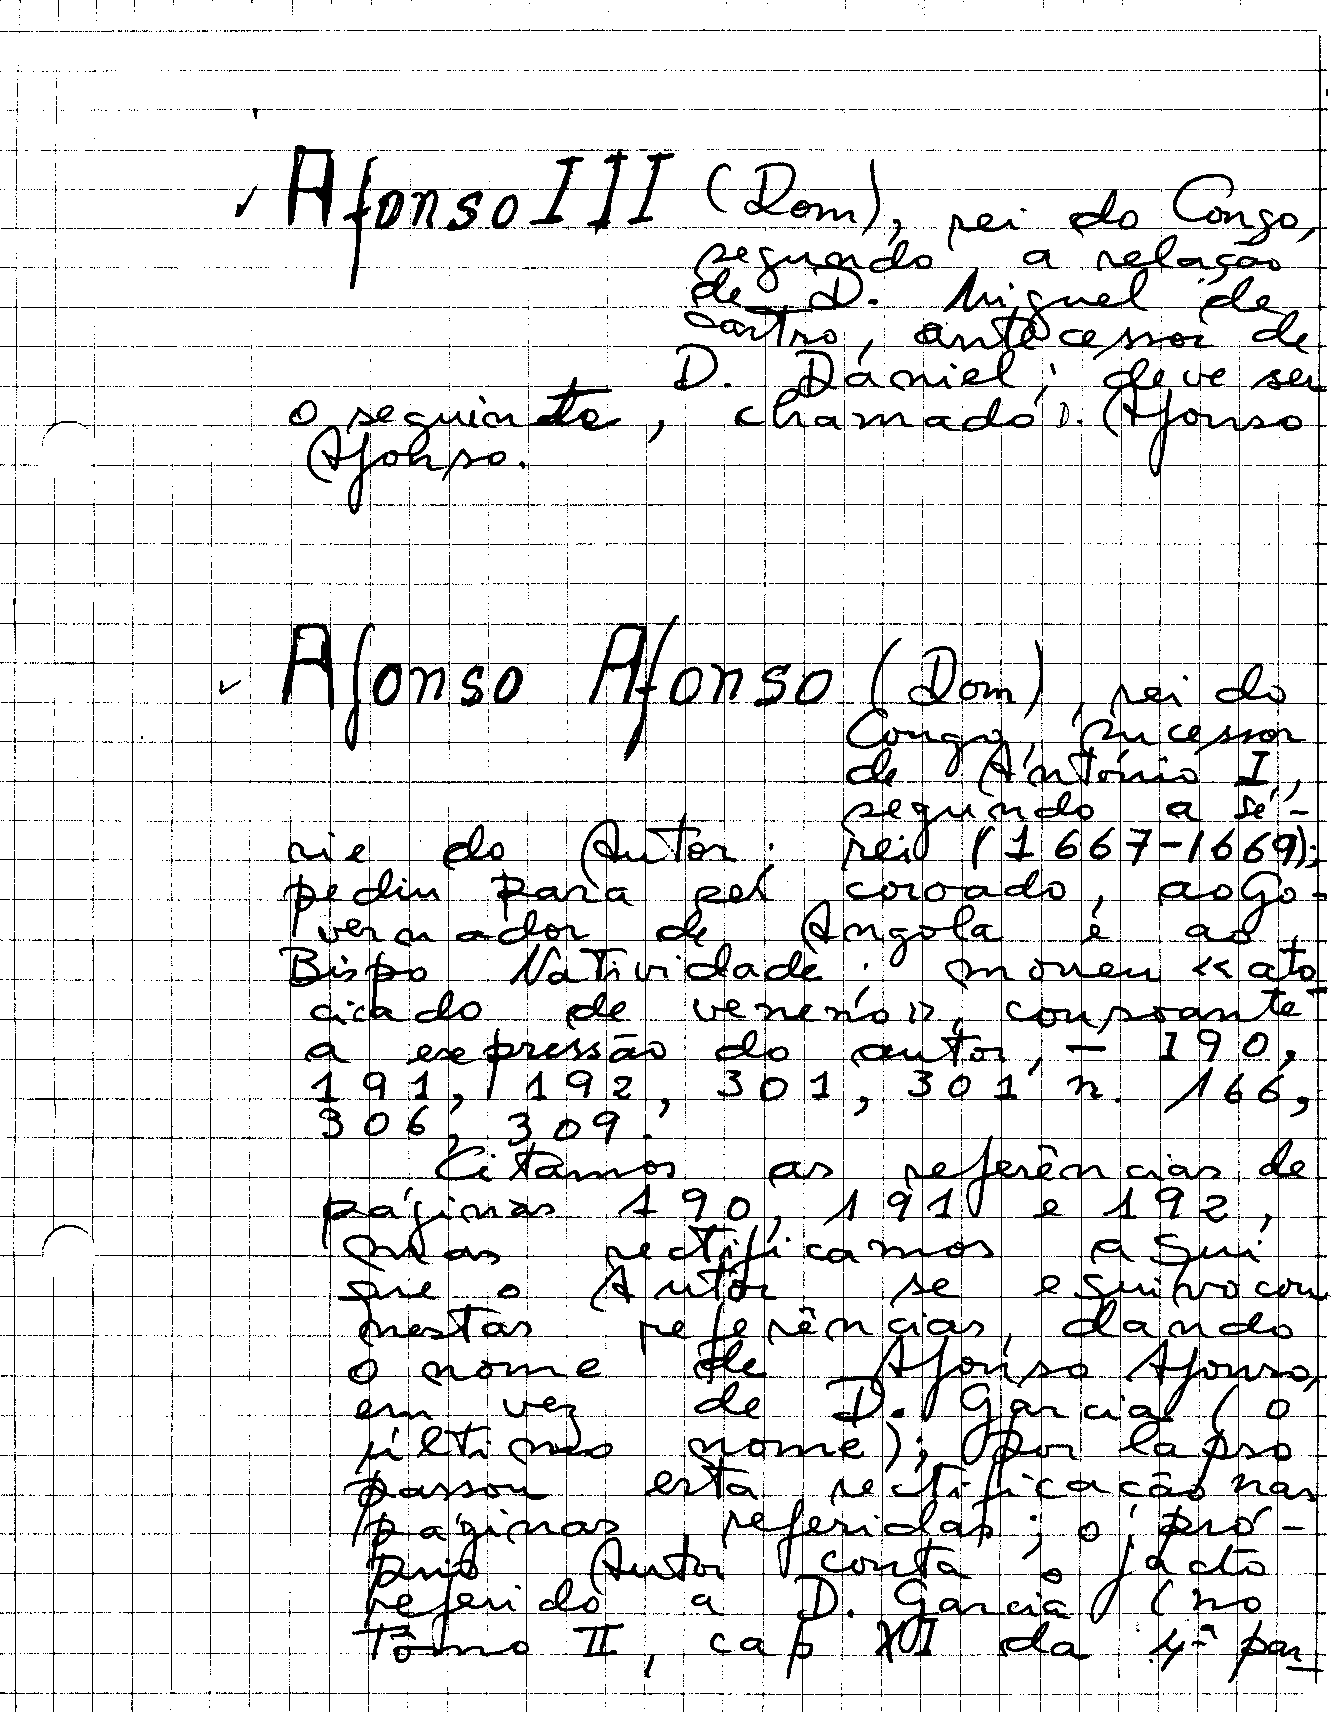 ✓ Afonso III (Dom), rei do Congo,
segundo a relação
de D. Miguel de
Castro, antecessor de
D. Daniel; deve ser
o seguinte, chamado D. Afonso
Afonso.
✓ Afonso Afonso (Dom), rei do
Congo, sucessor
de António I,
segundo a sé-
rie do Autor; rei (1667-1669);
pediu para ser coroado, ao Go-
vernador de Angola e ao
Bispo Natividade; morreu «ato
cicado de veneno», consoante
a expressão do autor, — 190,
191, 192, 301, 301 n. 166,
306, 309.
Citamos as referências de
páginas 190, 191 e 192,
mas rectificamos aqui
que o Autor se equivocou
nestas referências, dando
o nome de Afonso Afonso,
em vez de D. Garcia (o
último nome); por lapso
passou esta rectificação nas
páginas referidas; o pró-
prio Autor conta o facto
referido a D. Garcia (no
Tômo II, cap XI da 4ª par_